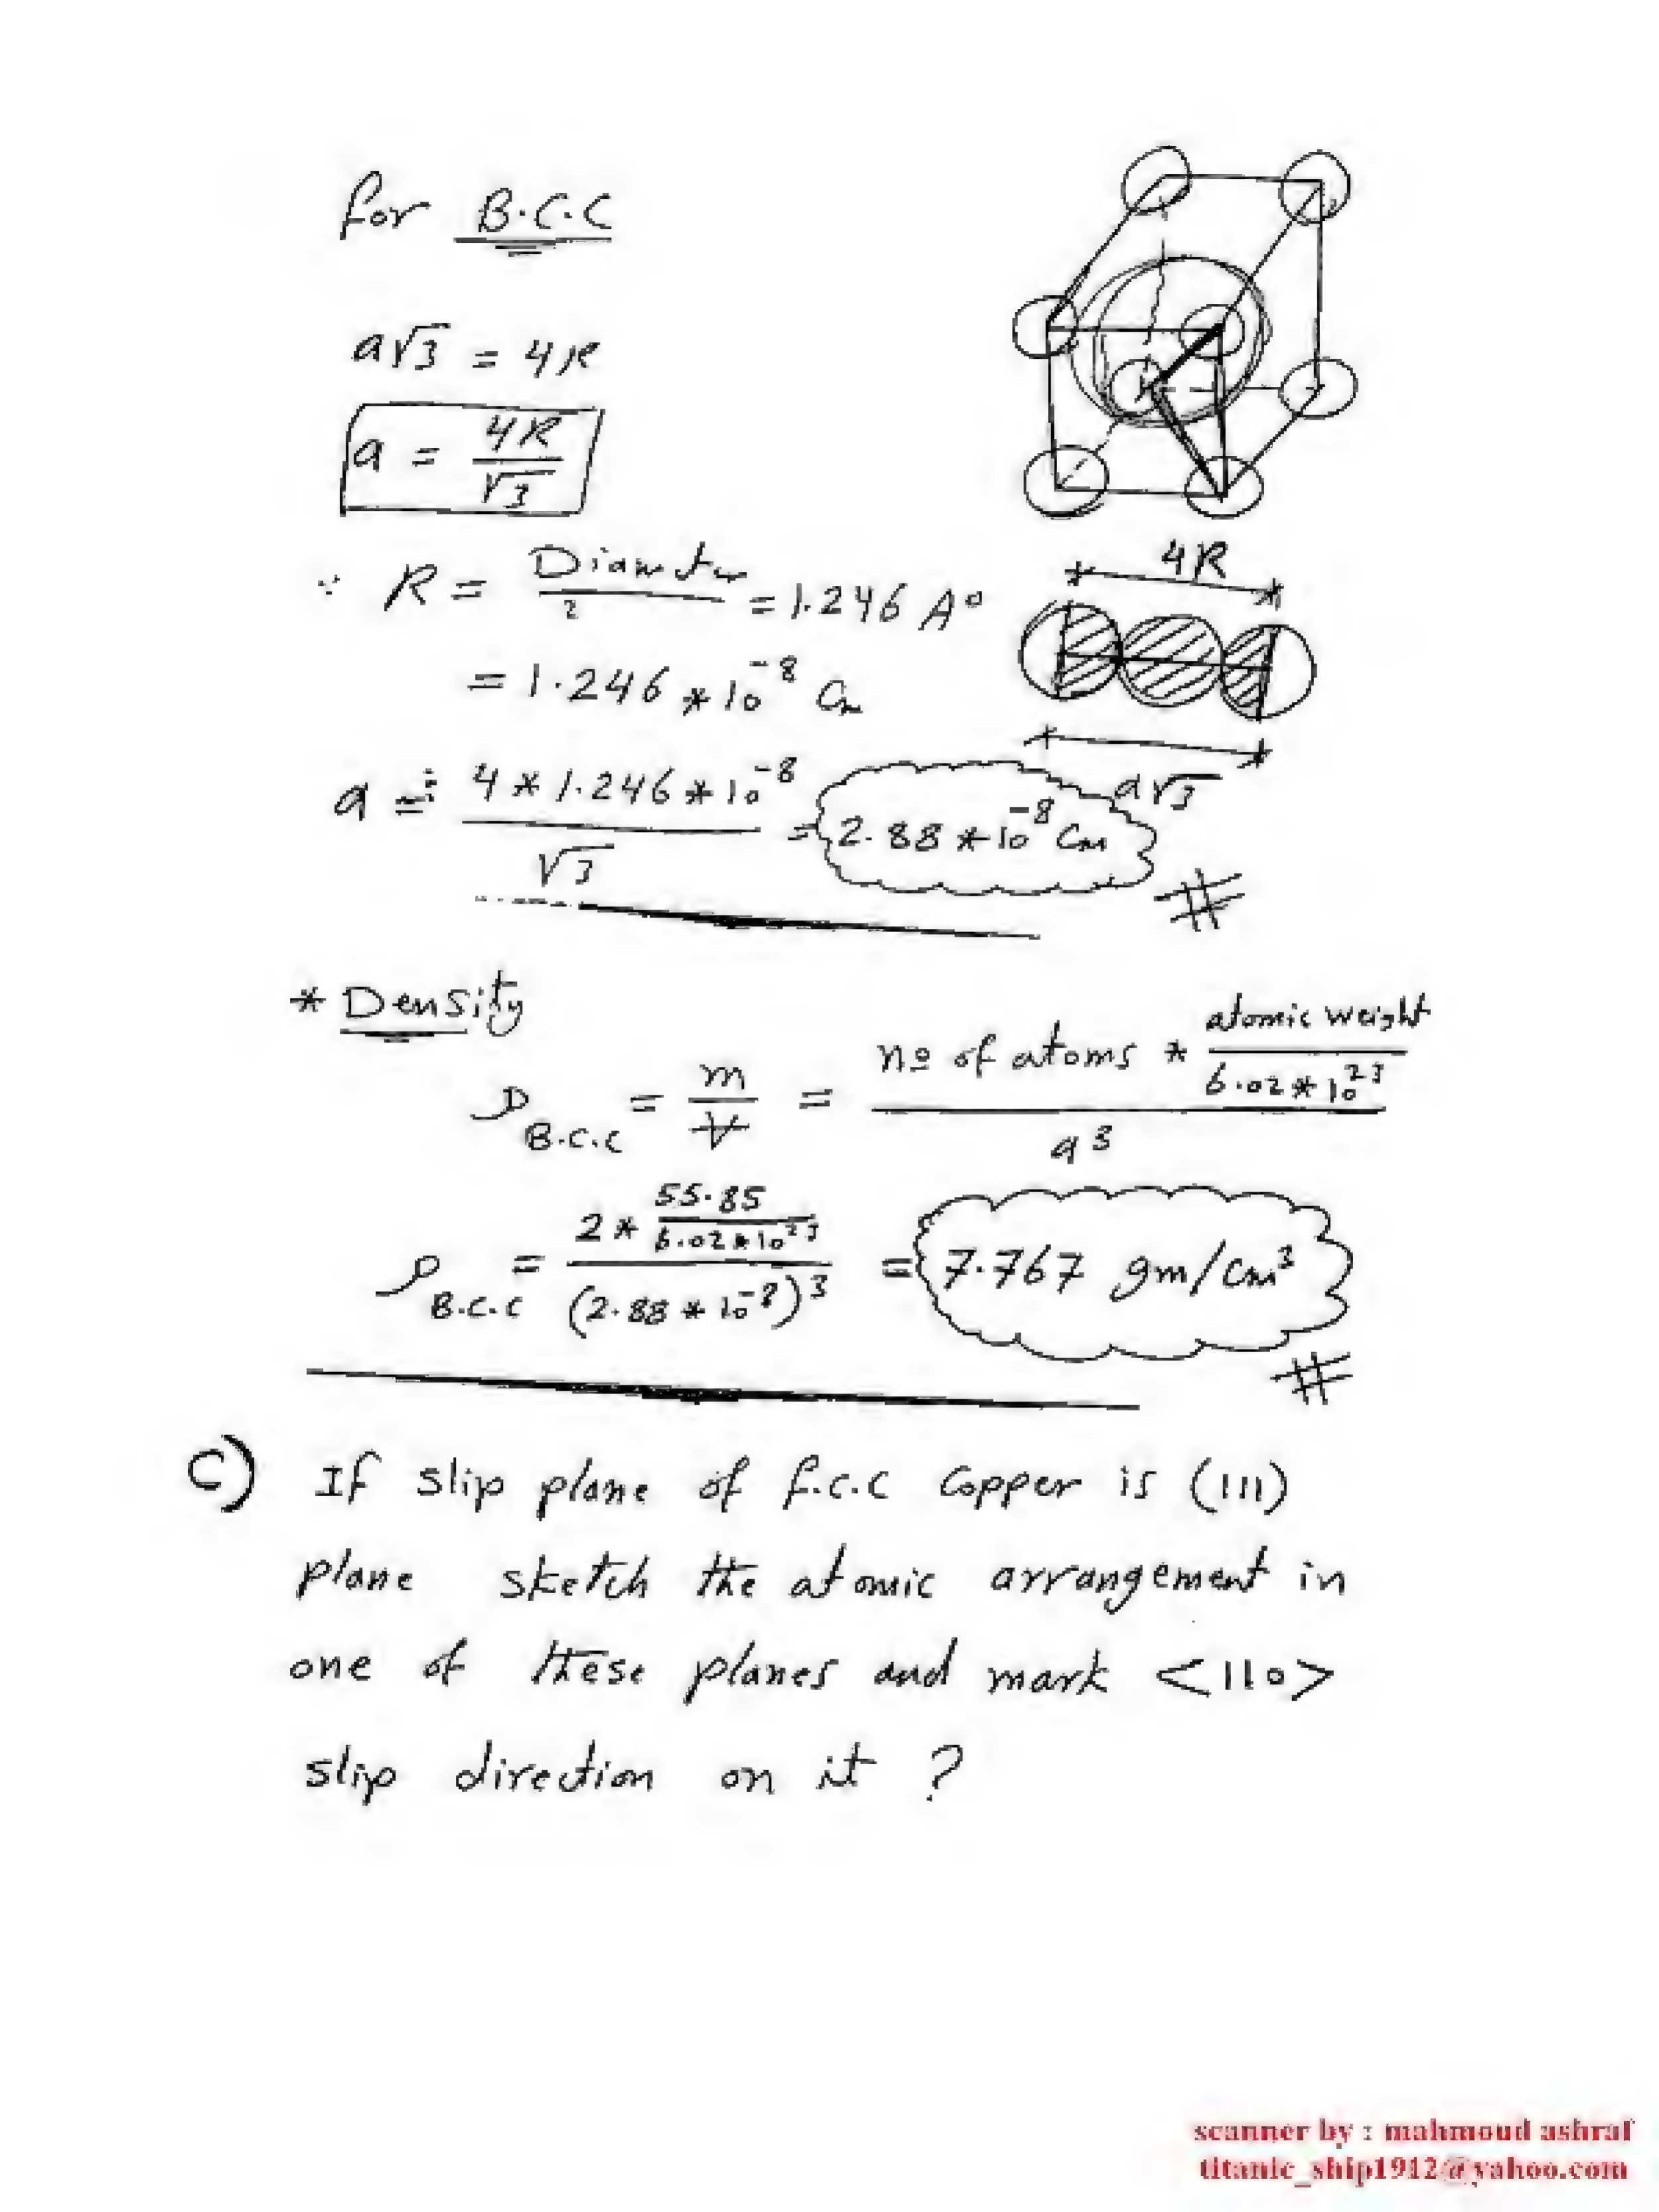 for B.C.C
a√3 = 4R
a = 4R/√3
∵ R = Diameter/2 = 1.246 A°
= 1.246 * 10^-8 Cm
4R
a√3
a = 4 * 1.246 * 10^-8 / √3 = 2.88 * 10^-8 Cm
#
* Density
ρ B.C.C = m/V = no of atoms * atomic weight / 6.02 * 10^23 / a^3
ρ B.C.C = 2 * 55.85 / 6.02 * 10^23 / (2.88 * 10^-8)^3 = 7.767 gm/cm^3
#
C) If slip plane of f.c.c Copper is (111)
plane sketch the atomic arrangement in
one of these planes and mark <110>
slip direction on it ?
scanner by : mahmoud ashraf
titanic_ship1912@yahoo.com